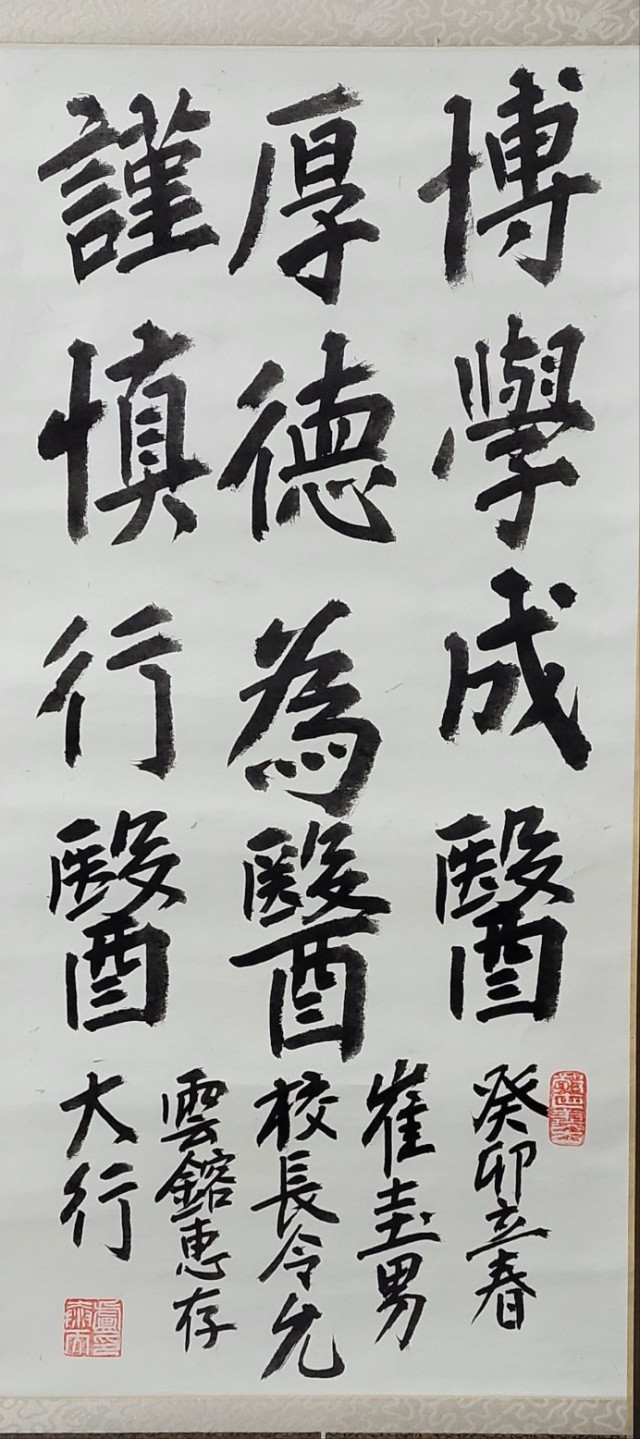 博學成醫
厚德為醫
謹慎行醫
癸卯立春
崔圭男
校長令允
雲鎔惠存
大行